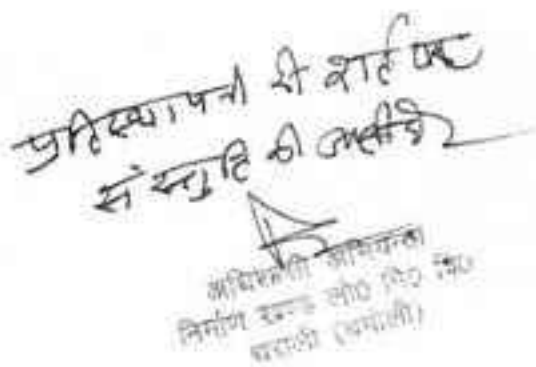 प्रतिस्थापनी की शर्त पर
संस्तुति की जाती है
अधिशासी अभियन्ता
निर्माण खण्ड लो० नि० वि०
थराली (चमोली)